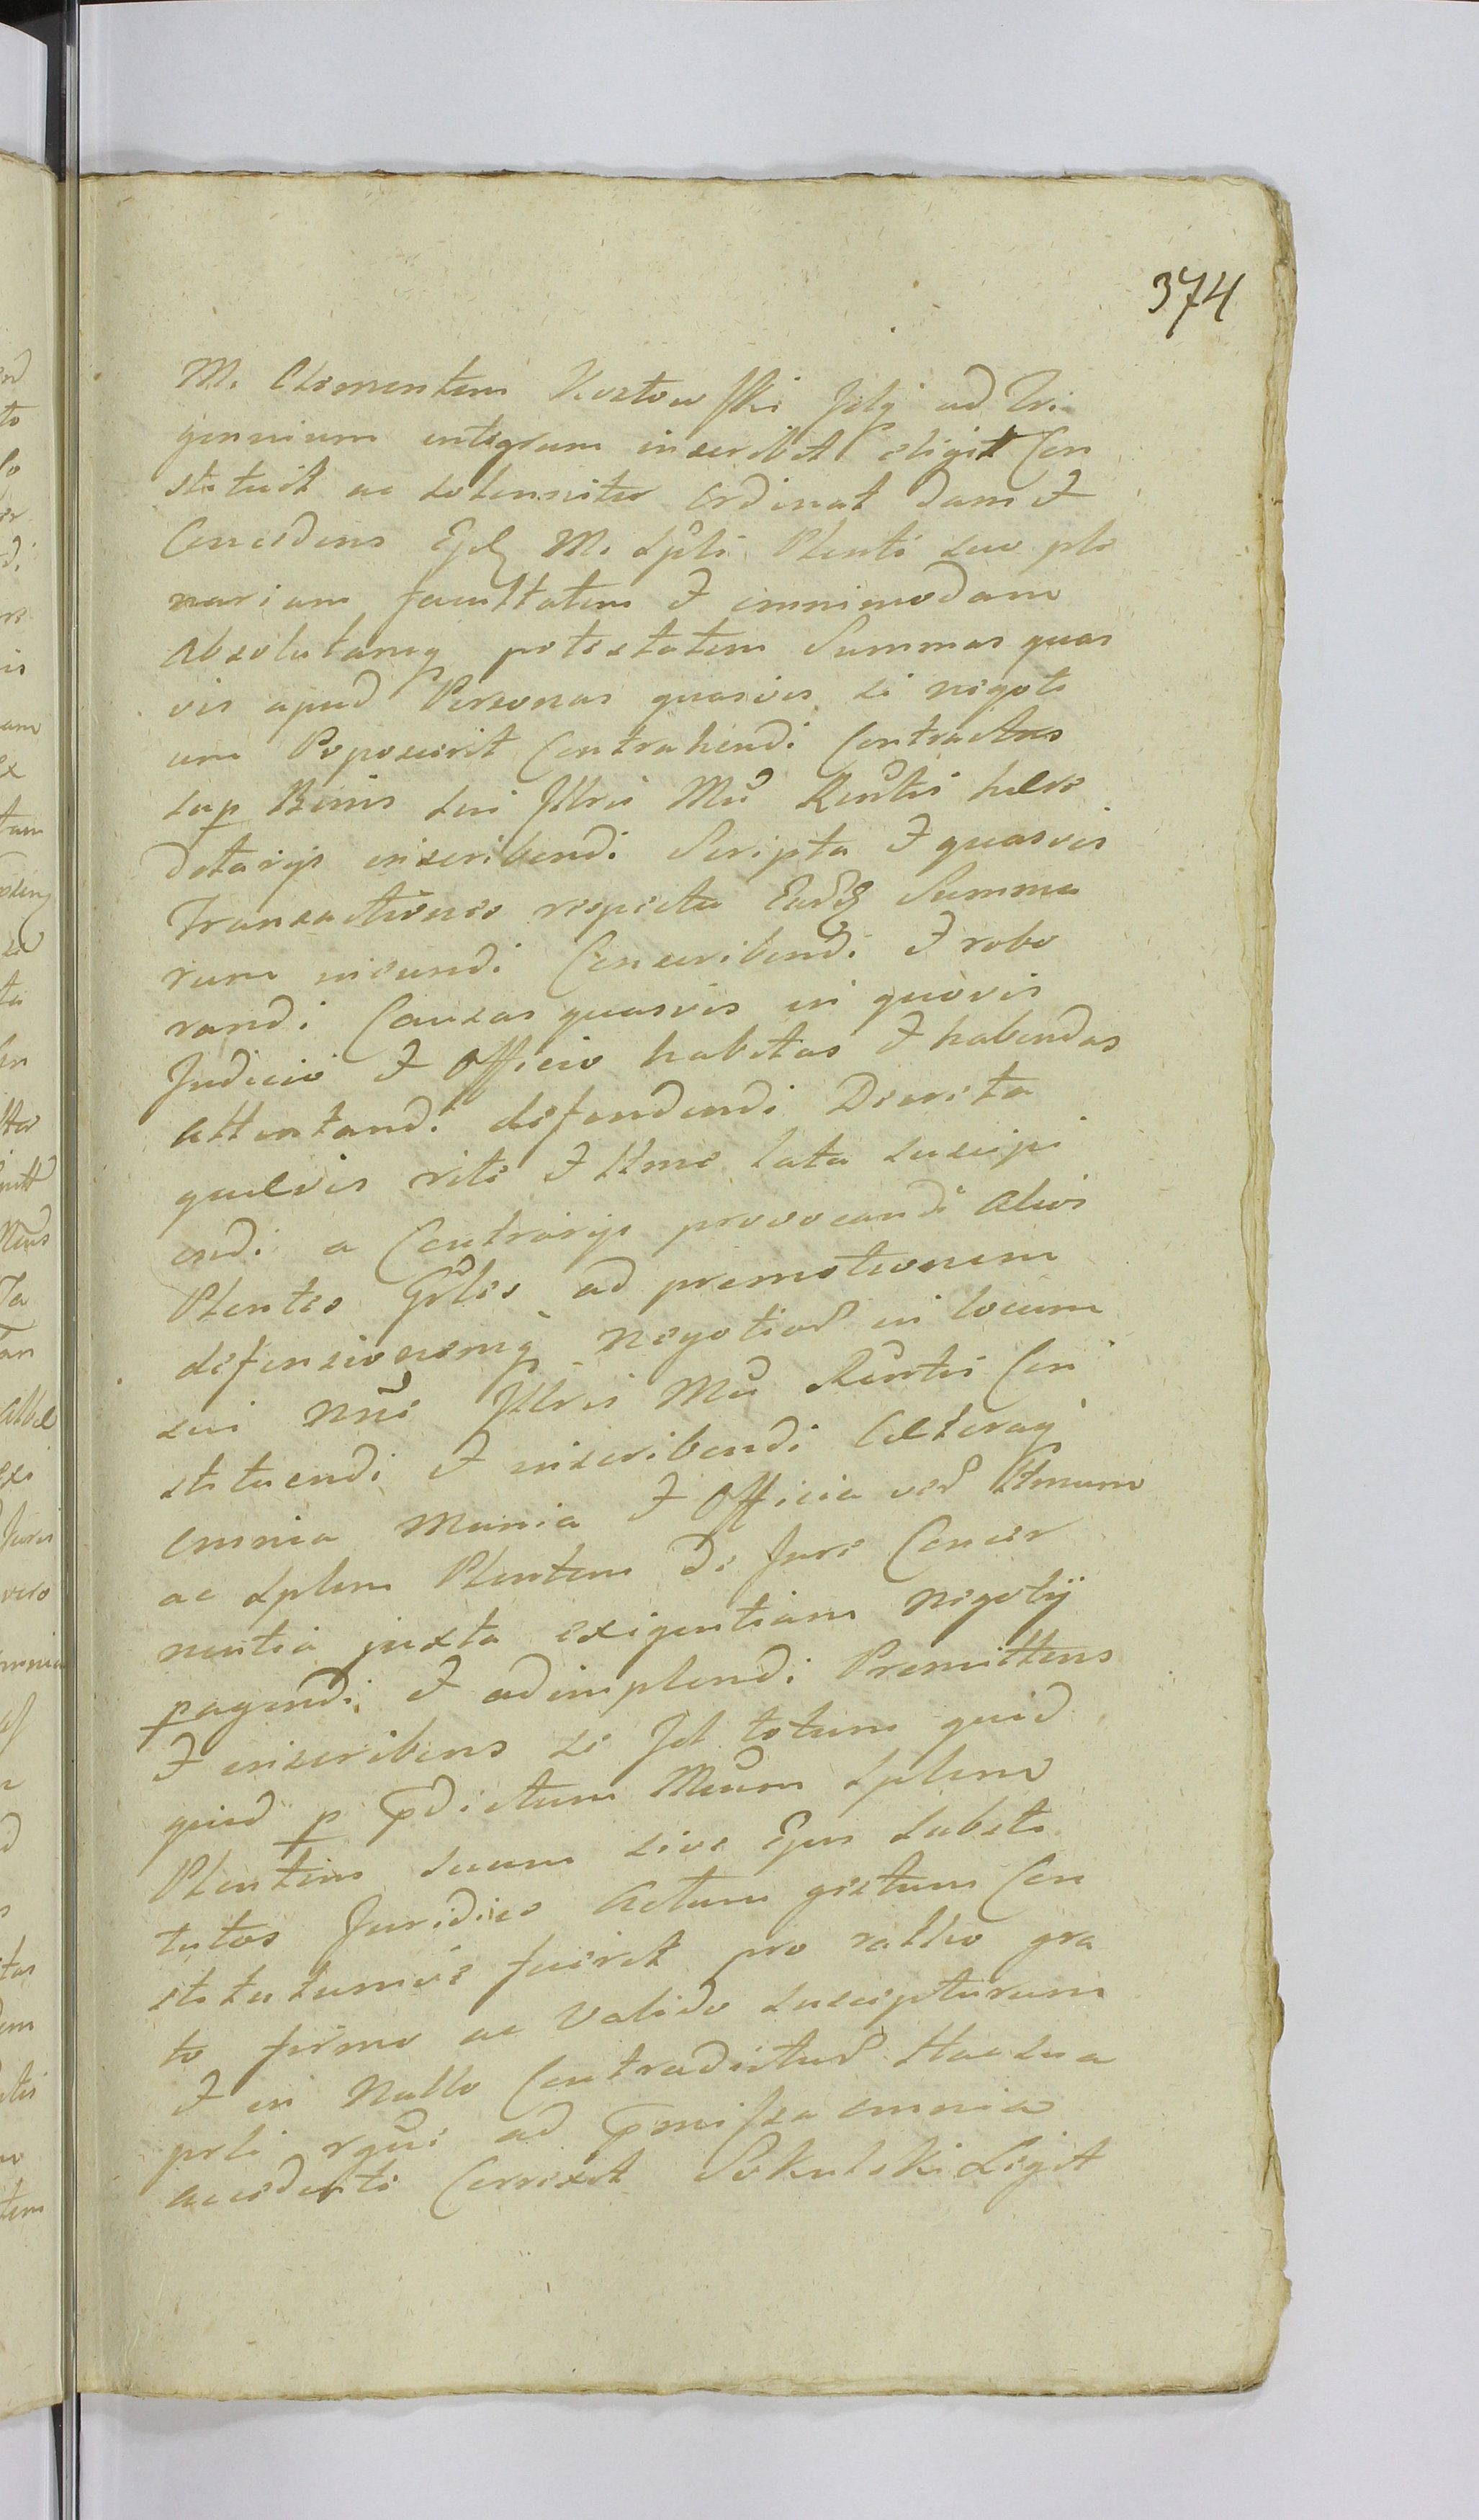 374
M. Clementem Kozłowski fidej ad Tri-
gennium integrum inscribit eligit Con
stituit ac solenniter Ordinat dans et
Concedens Ejdq M. Spli Plenti suo ple
nariam facultatem et omnimodam
absolutamq potestatem Summas quas
vis apud Personas quasvis si negoti
um Poposcerit Contrahendi Contractus
sup Bonis sui Illris Mci Rentis hære
ditarijs inscribendi Scripta et quasvis
Transactiones respectu Eardq Summa
rum ineundi Conscribendi et robo
randi Causas quasvis in quovis
Judicio et Officio habitas et habendas
attentandi defendendi Decreta
quævis rite et ltme lata suscipi
endi a Contrarijs provocandi alios
Plentes Gnles ad promotionem
defensionemq negotior in locum
sui nne Illris Mci Rentis Con
stituendi et inscribendi Cæteraq
omnia munia et Officia ver ltmum
ac Splem Plentem de Jure Concer
nentia juxta exigentiam negotij
pagendi et adimplendi Promittens
et inscribens se Id totum quid
quid p pdictum Mcum Splem
Plentem suum sive Ejus substi
tutos Juridice actum gestum Con
stitutumve fuerit pro ratho gra
to firmo ac valido suscepturum
et in nullo Contradictur Hac sua
prti rgne ad pmissa omnia
accedente Correxit Sokulski Legit